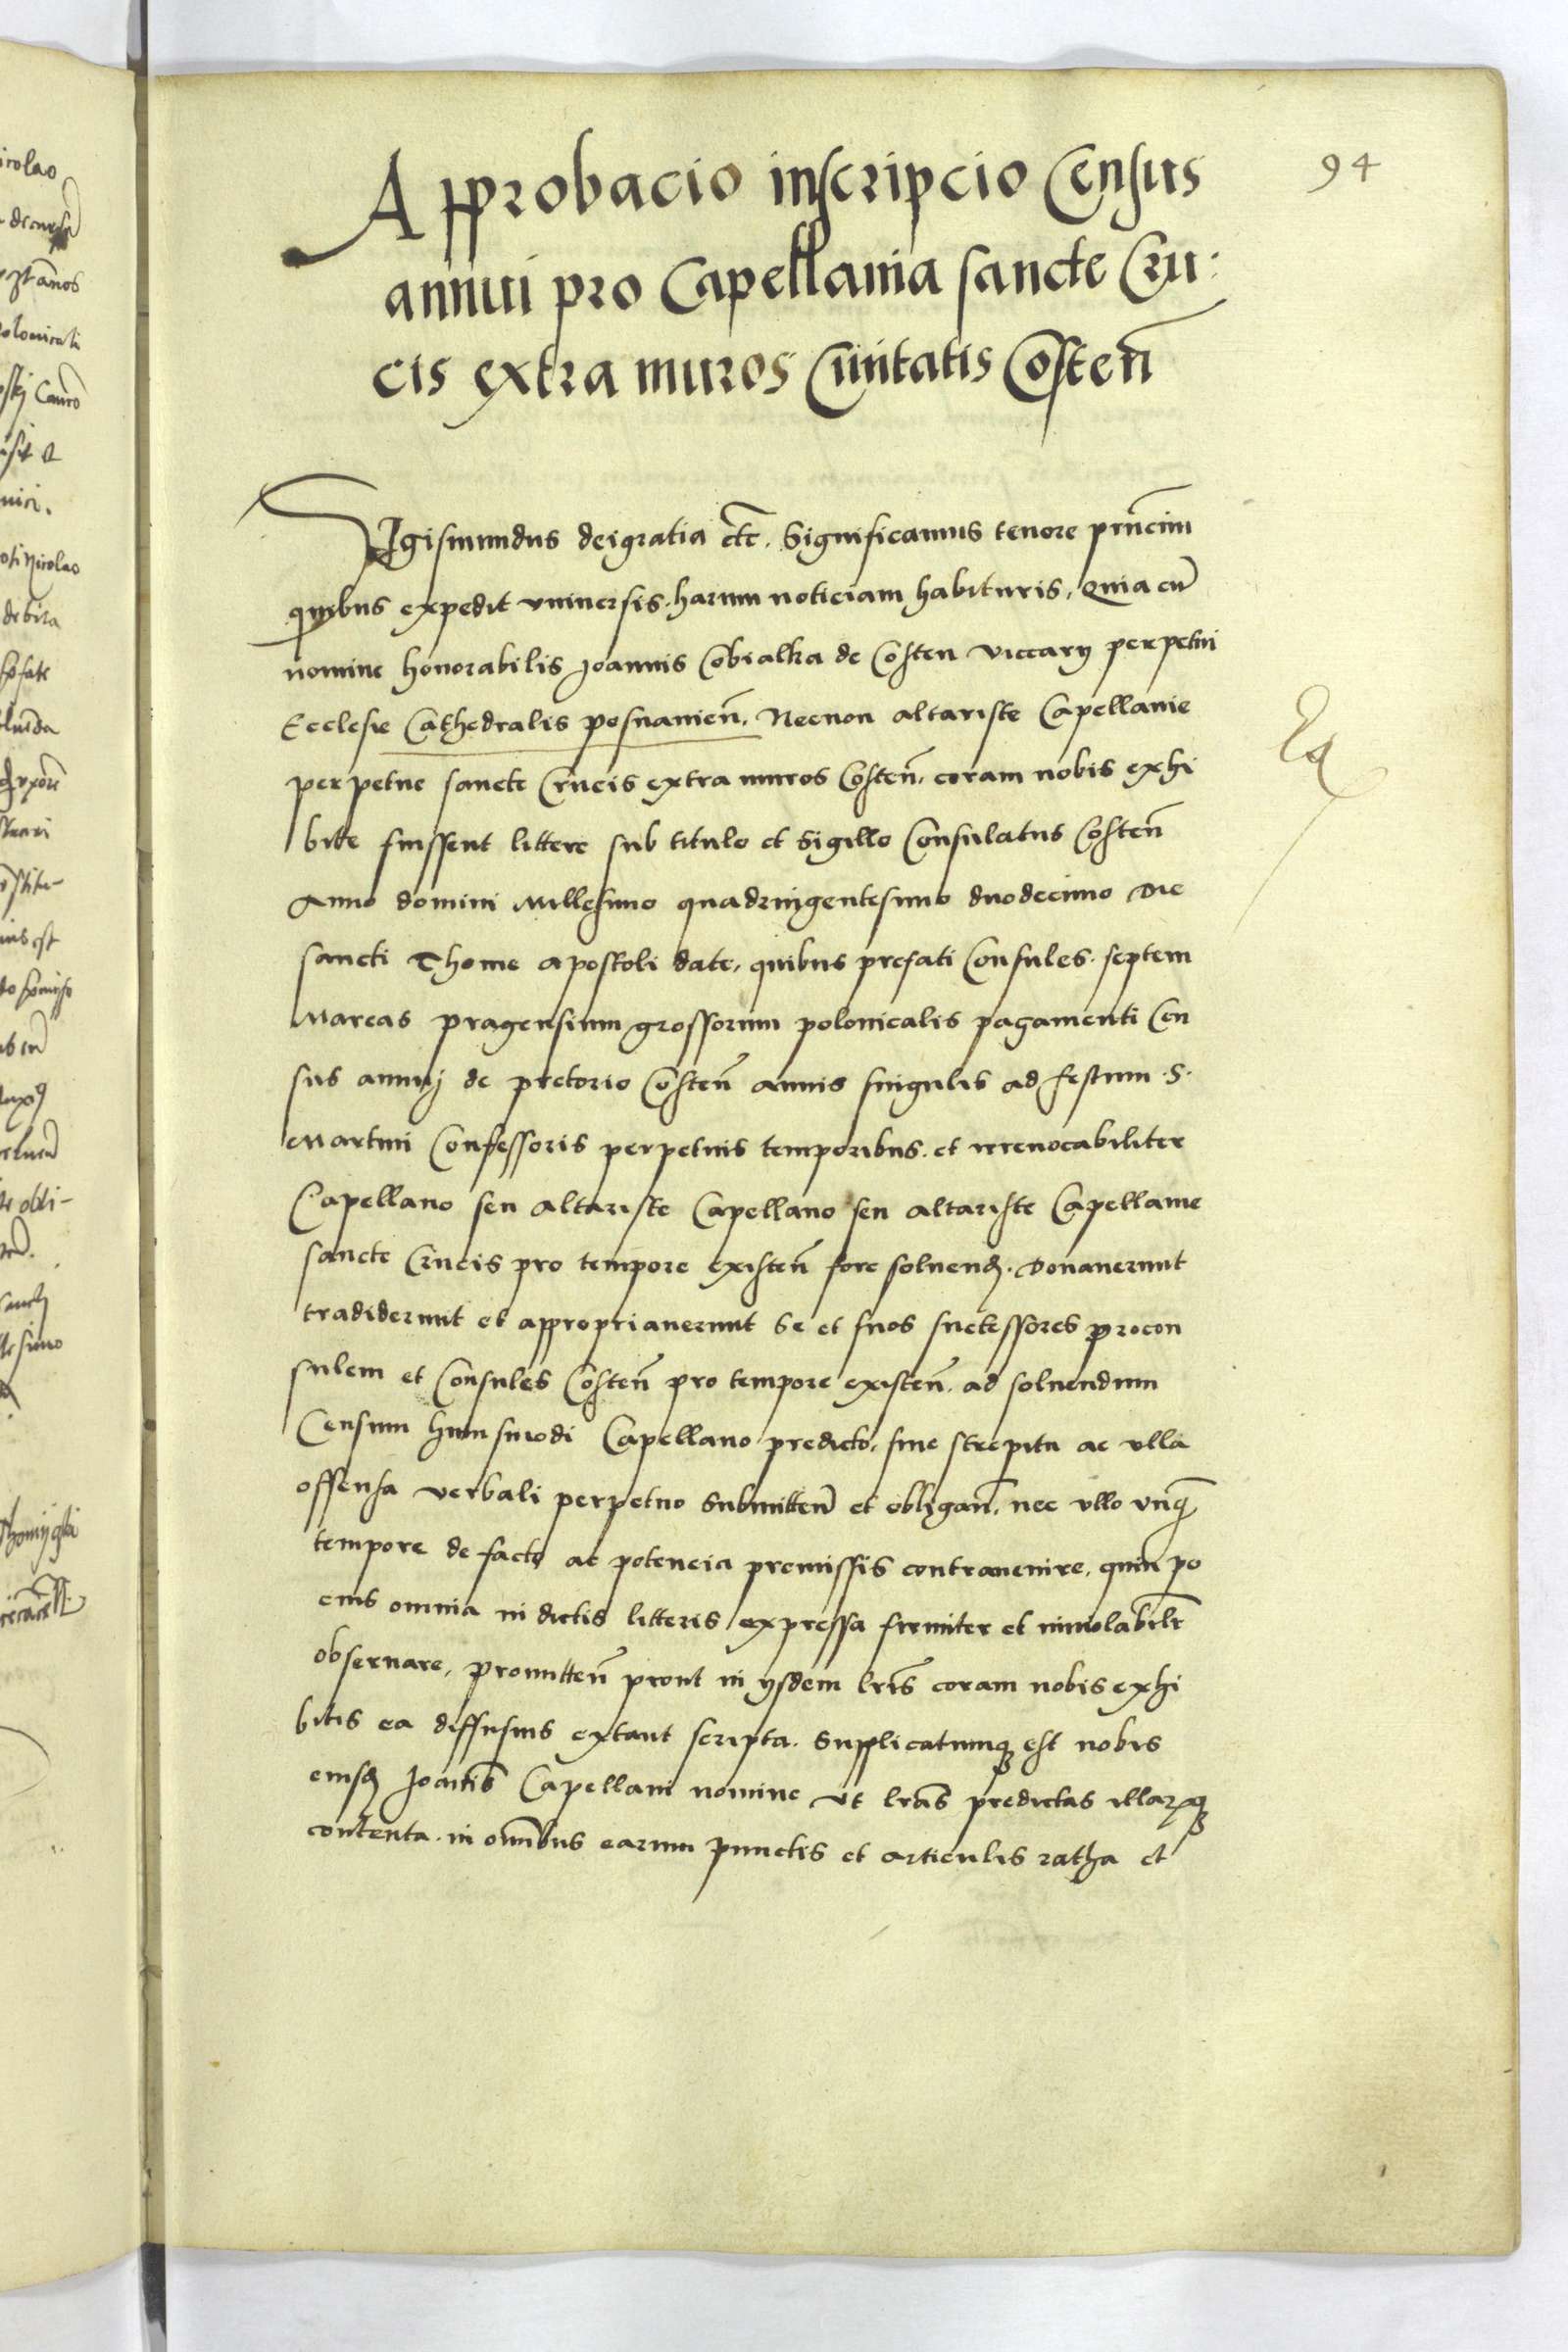 94
Approbacio inscripcio Census
annui pro Capellania sancte Cru:
cis extra muros Civitatis Costen̄
Igismundus dei gratia etc. Significamus tenore pn̄cium
quibus expedit vniuersis. harum noticiam habituris. Quia cu̅
nomine honorabilis Joannis Cobialka de Costen viccarij perpetui
Ecclesie Cathedralis posnanien̄. Necnon altariste Capellanie
perpetue sancte Crucis extra muros Costen̄. coram nobis exhi
bite fuissent littere sub titulo et Sigillo Consulatus Costen̄
Anno domini Millesimo quadringentesimo duodecimo Die
sancti Thome apostoli date, quibus prefati Consules. septem
Marcas pragensium grossorum polonicalis pagamenti Cen
sus annuj de pretorio Costen̄ annis singulis ad festum .S.
Martini Confessoris perpetuis temporibus. et irreuocabiliter
Capellano seu altariste Capellano seu altariste Capellanie
sancte Crucis pro tempore existen̄ fore soluend. Donauerunt
tradiderunt et appropriauerunt Se et suos successores procon
sulem et Consules Costen̄ pro tempore existen̄. ad soluendum
Censum huiusmodi Capellano predicto, sine strepitu ac vlla
offensa verbali perpetuo submitten̄ et obligan̄. nec vllo vnq̄
tempore de facto ac potencia premissis contrauenire, quin po
cius omnia in dictis litteris expressa firmiter et inuiolabilr̄
obseruare, promitten̄ prout in ijsdem lr̄is coram nobis exhi
bitis ea diffusius extant scripta. Supplicatumqȝ est nobis
eiusd Joan̄is Capellani nomine vt lr̄as predictas illarqȝ
contenta. in om̄ibus earum punctis et articulis ratha et